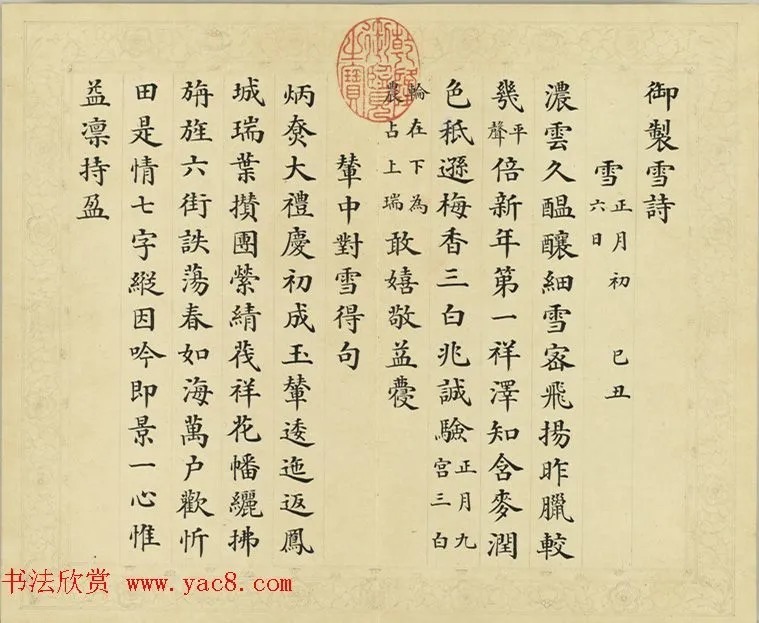 御製雪詩
雪 正月初六日 己丑
濃雲久醞釀細雪宻飛揚昨臘較
幾平聲倍新年第一祥澤知含麥潤
色秪遜梅香三白兆誠驗正月九宫三白
輪在下為農占上瑞敢嬉敬益蘉
輦中對雪得句
炳尞大禮慶初成玉輦逶迤返鳳
城瑞葉攢團縈綪茷祥花幡纚拂
旃旌六街詄蕩春如海萬户歡忻
田是情七字縱因吟即景一心惟
益凛持盈
乾隆御覽之寶
书法欣赏 www.yac8.com